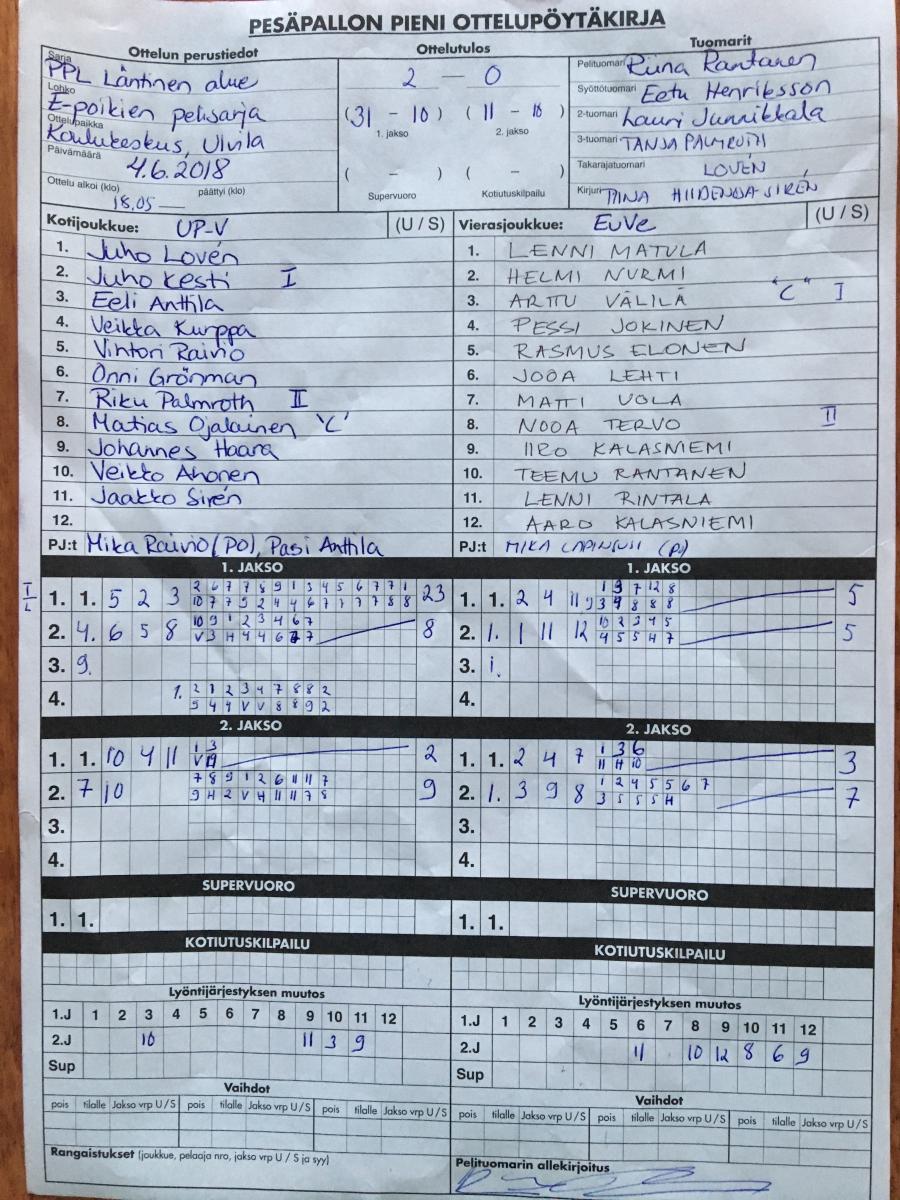 PESÄPALLON PIENI OTTELUPÖYTÄKIRJA
Ottelun perustiedot
Sarja PPL Läntinen alue
Lohko E-poikien pelisarja
Ottelupaikka Koulukeskus, Ulvila
Päivämäärä 4.6.2018
Ottelu alkoi (klo) päättyi (klo)
18.05
Ottelutulos
2 — 0
(31 – 10) (11 – 10)
1. jakso 2. jakso
( – ) ( – )
Supervuoro Kotiutuskilpailu
Tuomarit
Pelituomari Riina Rantanen
Syöttötuomari Eetu Henriksson
2-tuomari Lauri Junnikkala
3-tuomari TANJA PALMROTH
Takarajatuomari LOVÉN
Kirjuri TIINA HIIDENOJA-SIRÉN
Kotijoukkue: UP-V (U / S)
1. Juho Lovén
2. Juho Kesti I
3. Eeli Anttila
4. Veikka Kurppa
5. Vihtori Raivio
6. Onni Grönman
7. Riku Palmroth II
8. Matias Ojalainen "C"
9. Johannes Haara
10. Veikko Ahonen
11. Jaakko Sirén
12.
PJ:t Mika Raivio (PO), Pasi Anttila
Vierasjoukkue: EuVe (U / S)
1. LENNI MATULA
2. HELMI NURMI
3. ARTTU VÄLILÄ "C" I
4. PESSI JOKINEN
5. RASMUS ELONEN
6. JOOA LEHTI
7. MATTI UOLA
8. NOOA TERVO II
9. IIRO KALASNIEMI
10. TEEMU RANTANEN
11. LENNI RINTALA
12. AARO KALASNIEMI
PJ:t MIKA
1. JAKSO
1. 1. 5 2 3 23
2. 4. 6 5 8 10 9 1 2 3 4 6 7 8
3. 9.
4. 1. 2 1 2 3 4 7 8 8 2
5 4 4 V V 8 8 9 2
1. JAKSO
1. 1. 2 4 11 5
2. 1. 1 11 12 10 2 3 4 5 5
4 5 5 H 7
3. 1.
4.
2. JAKSO
1. 1. 10 4 11 1 3 2
2. 7 10 7 8 9 1 2 6 11 11 7 9
9 H 2 V H 11 11 7 8
3.
4.
2. JAKSO
1. 1. 2 4 7 1 3 6 3
11 H 10
2. 1. 3 9 8 1 2 4 5 5 6 7 7
3 5 5 5 H
3.
4.
SUPERVUORO
1. 1.
SUPERVUORO
1. 1.
KOTIUTUSKILPAILU
KOTIUTUSKILPAILU
Lyöntijärjestyksen muutos
1.J 1 2 3 4 5 6 7 8 9 10 11 12
2.J 10 11 3 9
Sup
Lyöntijärjestyksen muutos
1.J 1 2 3 4 5 6 7 8 9 10 11 12
2.J 11 10 12 8 6 9
Sup
Vaihdot
pois tilalle Jakso vrp U / S pois tilalle Jakso vrp U / S pois tilalle Jakso vrp U / S
Vaihdot
pois tilalle Jakso vrp U / S pois tilalle Jakso vrp U / S pois tilalle Jakso vrp U / S
Rangaistukset (joukkue, pelaaja nro, jakso vrp U / S ja syy)
Pelituomarin allekirjoitus